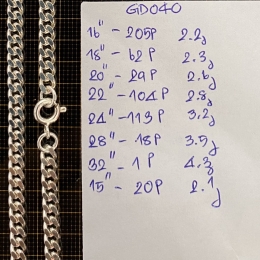 GD040
16" - 205P 2.2g
18" - 62P 2.3g
20" - 29P 2.6g
22" - 104P 2.8g
24" - 113P 3.2g
28" - 18P 3.5g
32" - 1P 4.3g
15" - 20P 2.1g